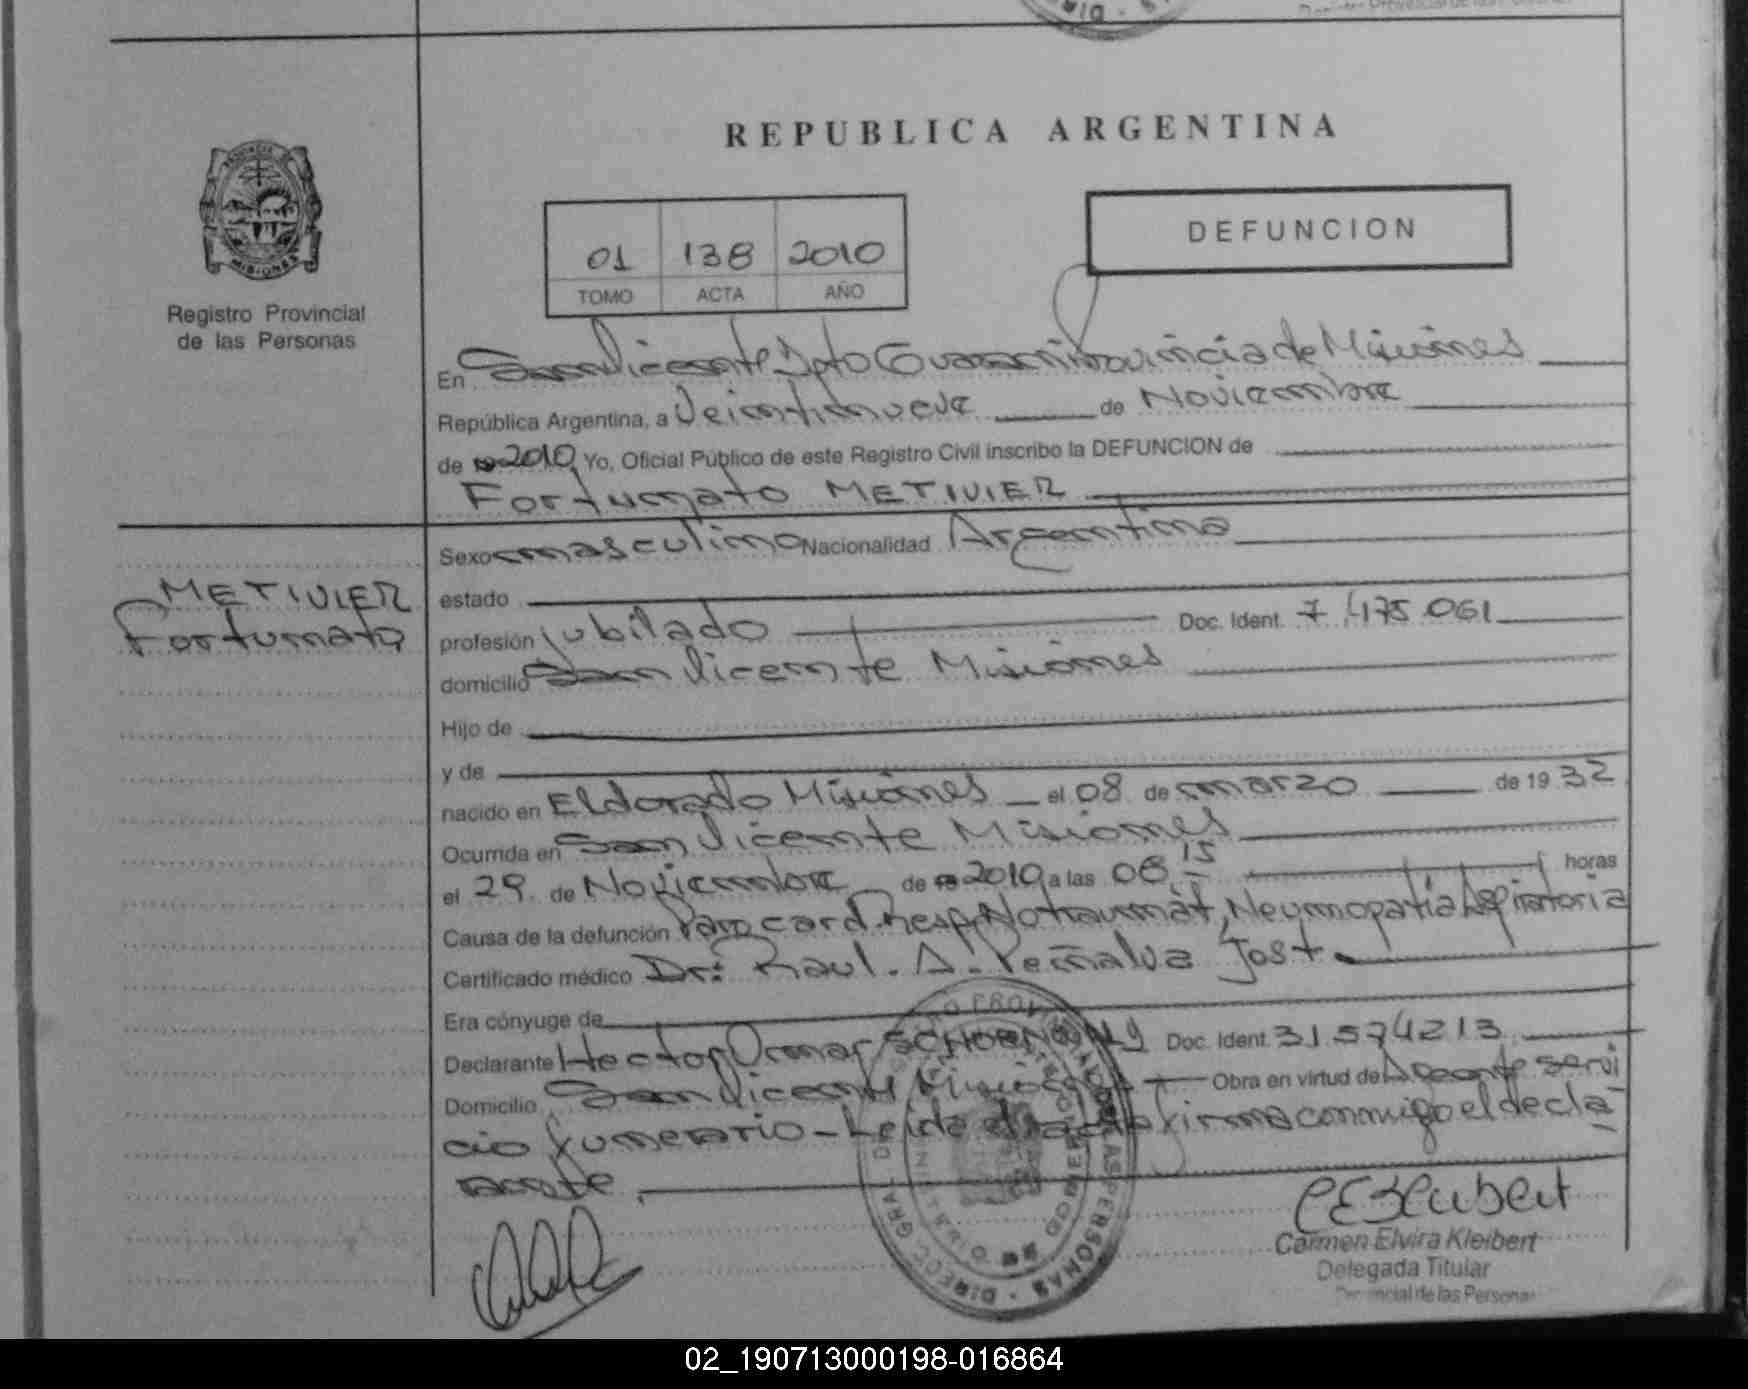 REPUBLICA ARGENTINA
PROVINCIA DE
MISIONES
Registro Provincial
de las Personas
01 138 2010
TOMO ACTA AÑO
DEFUNCION
En San Vicente Dpto Guarani Provincia de Misiones
República Argentina, a Veintinueve de Noviembre
de 2010 Yo, Oficial Público de este Registro Civil inscribo la DEFUNCION de
Fortunato METIVIER
METIVIER
Fortunato
Sexo masculino Nacionalidad Argentina
estado
profesión jubilado Doc. Ident. 7.475.061
domicilio San Vicente Misiones
Hijo de
y de
nacido en Eldorado Misiones el 08 de marzo de 19 32
Ocurrida en San Vicente Misiones
el 29 de Noviembre de 2010 a las 06 15 horas
Causa de la defunción Paro card. Resp. No traumat, Neumopatia Aspiratoria
Certificado médico Dr: Raul. A. Peñalva Jost.
Era cónyuge de
Declarante Hector Omar Doc. Ident. 31.574213
Domicilio San Vicente Misiones Obra en virtud de Agente servi
cio funerario - Leida el acta firma conmigo el decla
rante,
Carmen Elvira Kleibert
Delegada Titular
Provincial de las Personas
02_190713000198-016864